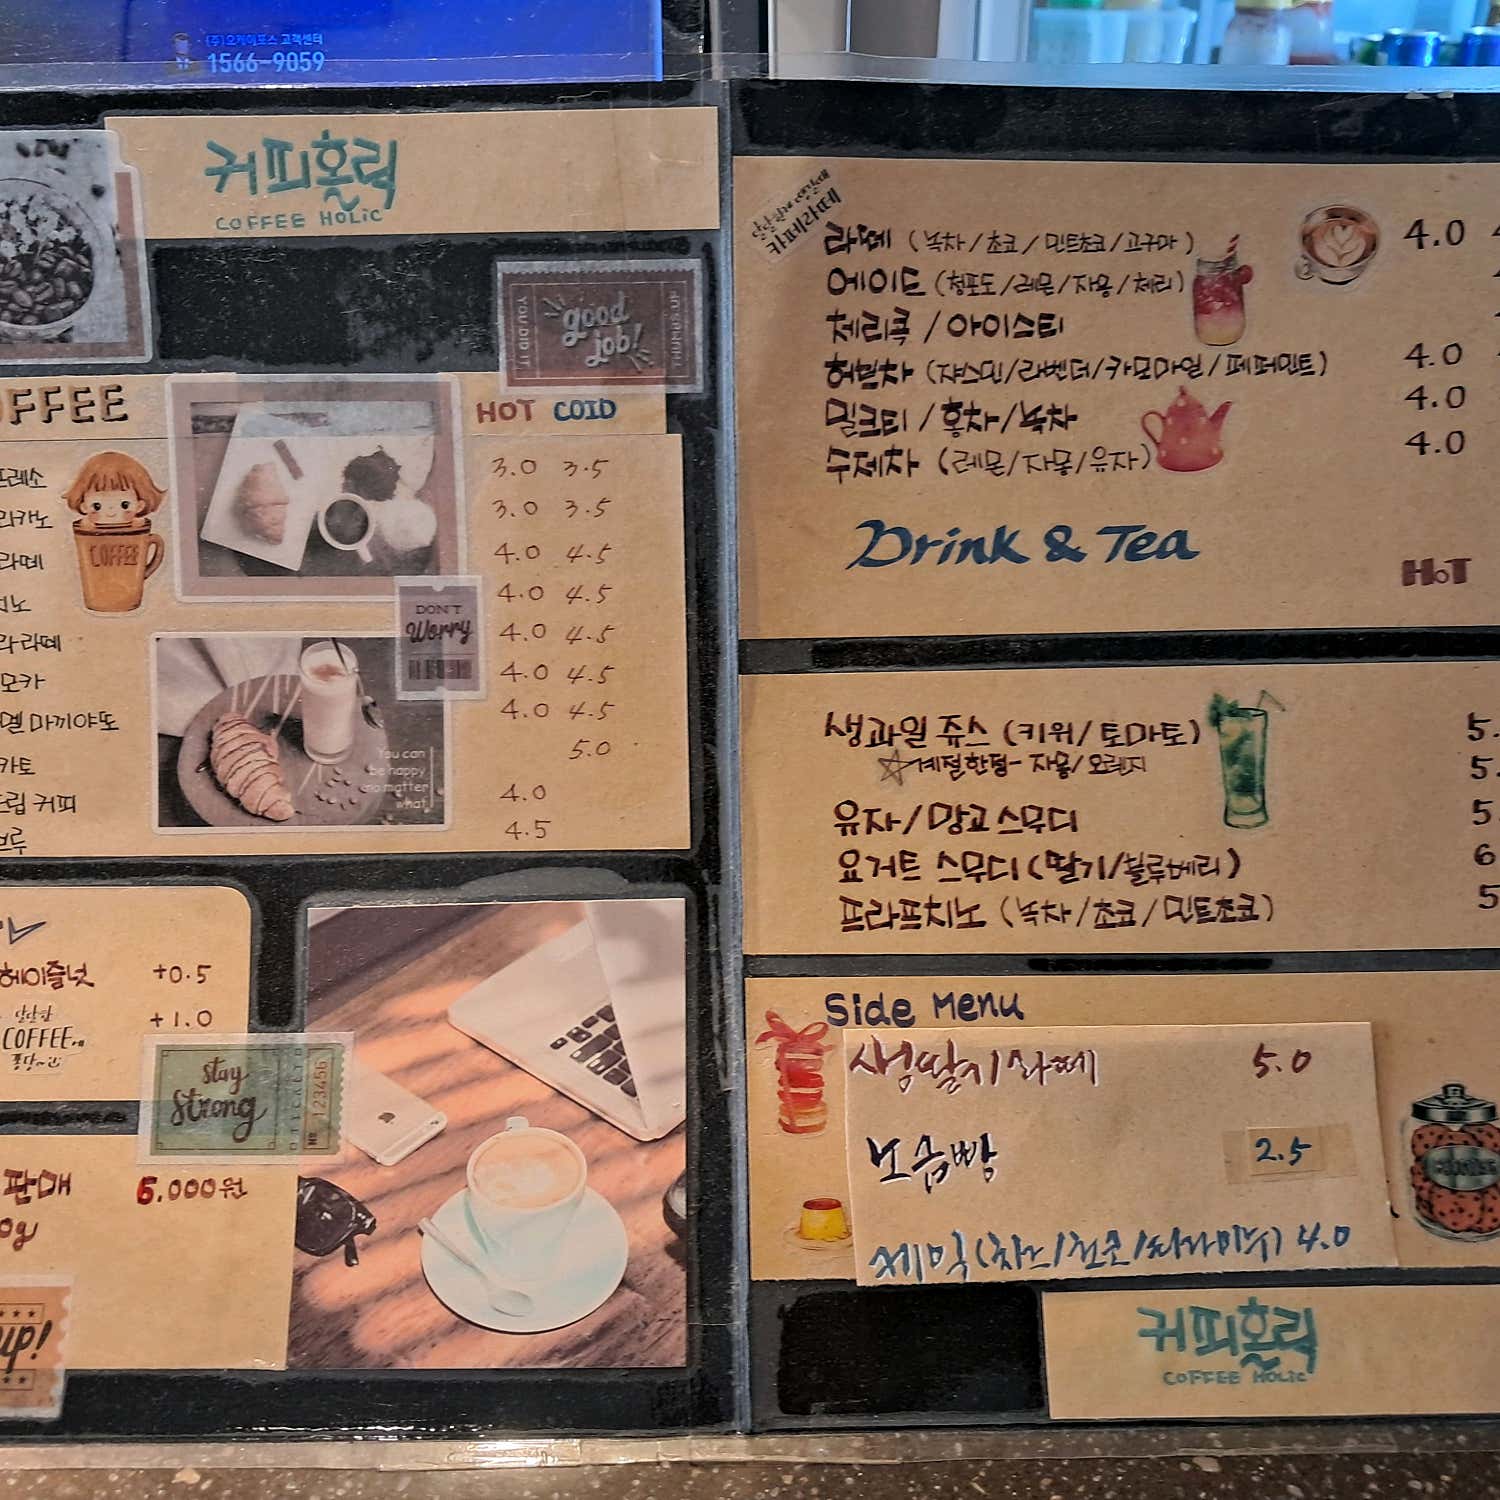 (주)오케이포스 고객센터
1566-9059
커피홀릭
COFFEE HOLIC
YOU DID IT
good
job!
THUMBS UP
OFFEE
HOT COLD
프레소 3.0 3.5
리카노 3.0 3.5
라떼 4.0 4.5
치노 4.0 4.5
라 라떼 4.0 4.5
모카 4.0 4.5
멜 마끼야또 4.0 4.5
카토 5.0
드립 커피 4.0
브루 4.5
COFFEE
DON'T
Worry
You can
be happy
no matter
what
헤이즐넛 +0.5
달달한
COFFEE
+1.0
stay
strong
123456
판매 5.000원
0g
카페라떼
라떼 (녹차/초코/민트초코/고구마) 4.0
에이드 (청포도/레몬/자몽/체리)
체리콕 / 아이스티
허브차 (쟈스민/라벤더/카모마일/페퍼민트) 4.0
밀크티 / 홍차/녹차 4.0
수제차 (레몬/자몽/유자) 4.0
Drink & Tea
HOT
생과일 쥬스 (키위/토마토) 5.
☆계절한정- 자몽/오렌지 5.
유자/망고 스무디 5.
요거트 스무디 (딸기/블루베리) 6
프라프치노 (녹차/초코/민트초코) 5
Side Menu
생딸기라떼 5.0
노슈빵 2.5
케익 4.0
커피홀릭
COFFEE HOLIC